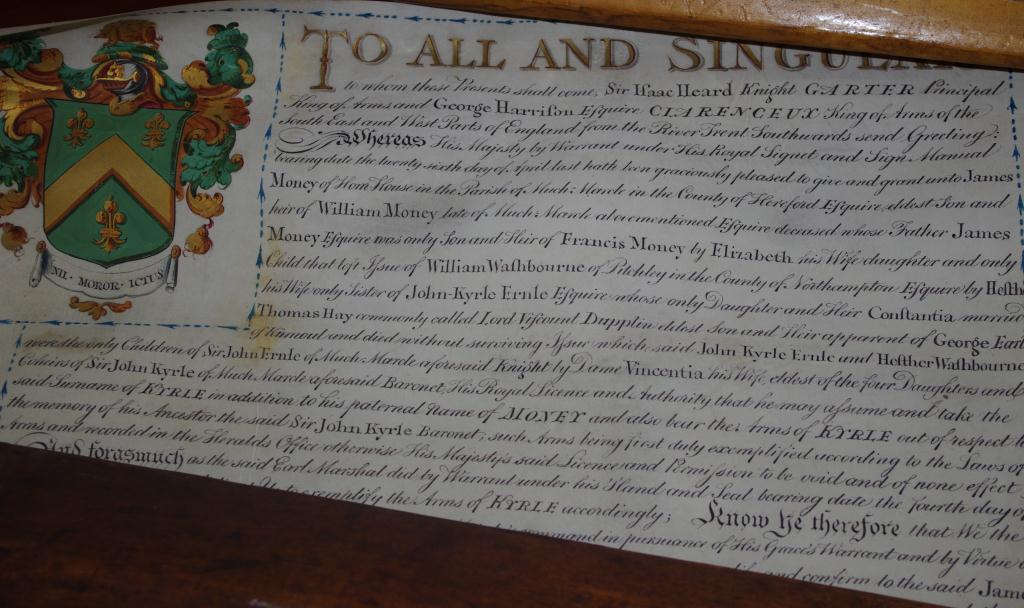 NIL · MOROR · ICTUS
TO ALL AND SINGULA
to whom these Presents shall come, Sir Isaac Heard Knight GARTER Principal
King of Arms and George Harrison Esquire CLARENCEUX King of Arms of the
South East and West Parts of England from the River Trent Southwards send Greeting:
Whereas His Majesty by Warrant under His Royal Signet and Sign Manual
bearing date the twenty-sixth day of April last hath been graciously pleased to give and grant unto James
Money of Hom House in the Parish of Much-Marcle in the County of Hereford Esquire, eldest Son and
heir of William Money late of Much-Marcle abovementioned Esquire deceased whose Father James
Money Esquire was only Son and Heir of Francis Money by Elizabeth his Wife daughter and only
Child that left Issue of William Washbourne of Pitchley in the County of Northampton Esquire by Hesth
his Wife only Sister of John-Kyrle Ernle Esquire whose only Daughter and Heir Constantia married
Thomas Hay commonly called Lord Viscount Dupplin eldest Son and Heir apparent of George Earl
of Kinnoul and died without surviving Issue which said John Kyrle Ernle and Hesther Washbourne
were the only Children of Sir John Ernle of Much Marcle aforesaid Knight by Dame Vincentia his Wife, eldest of the four Daughters and
Coheirs of Sir John Kyrle of Much Marcle aforesaid Baronet, His Royal Licence and Authority that he may assume and take the
said Surname of KYRLE in addition to his paternal Name of MONEY and also bear the Arms of KYRLE out of respect to
the memory of his Ancestor the said Sir John Kyrle Baronet; such Arms being first duly exemplified according to the Laws of
Arms and recorded in the Heralds Office otherwise His Majesty's said Licence and Permission to be void and of none effect
And forasmuch as the said Earl Marshal did by Warrant under his Hand and Seal bearing date the fourth day of
to exemplify the Arms of KYRLE accordingly; Know Ye therefore that We the
command in pursuance of His Grace's Warrant and by Virtue
and confirm to the said Jame